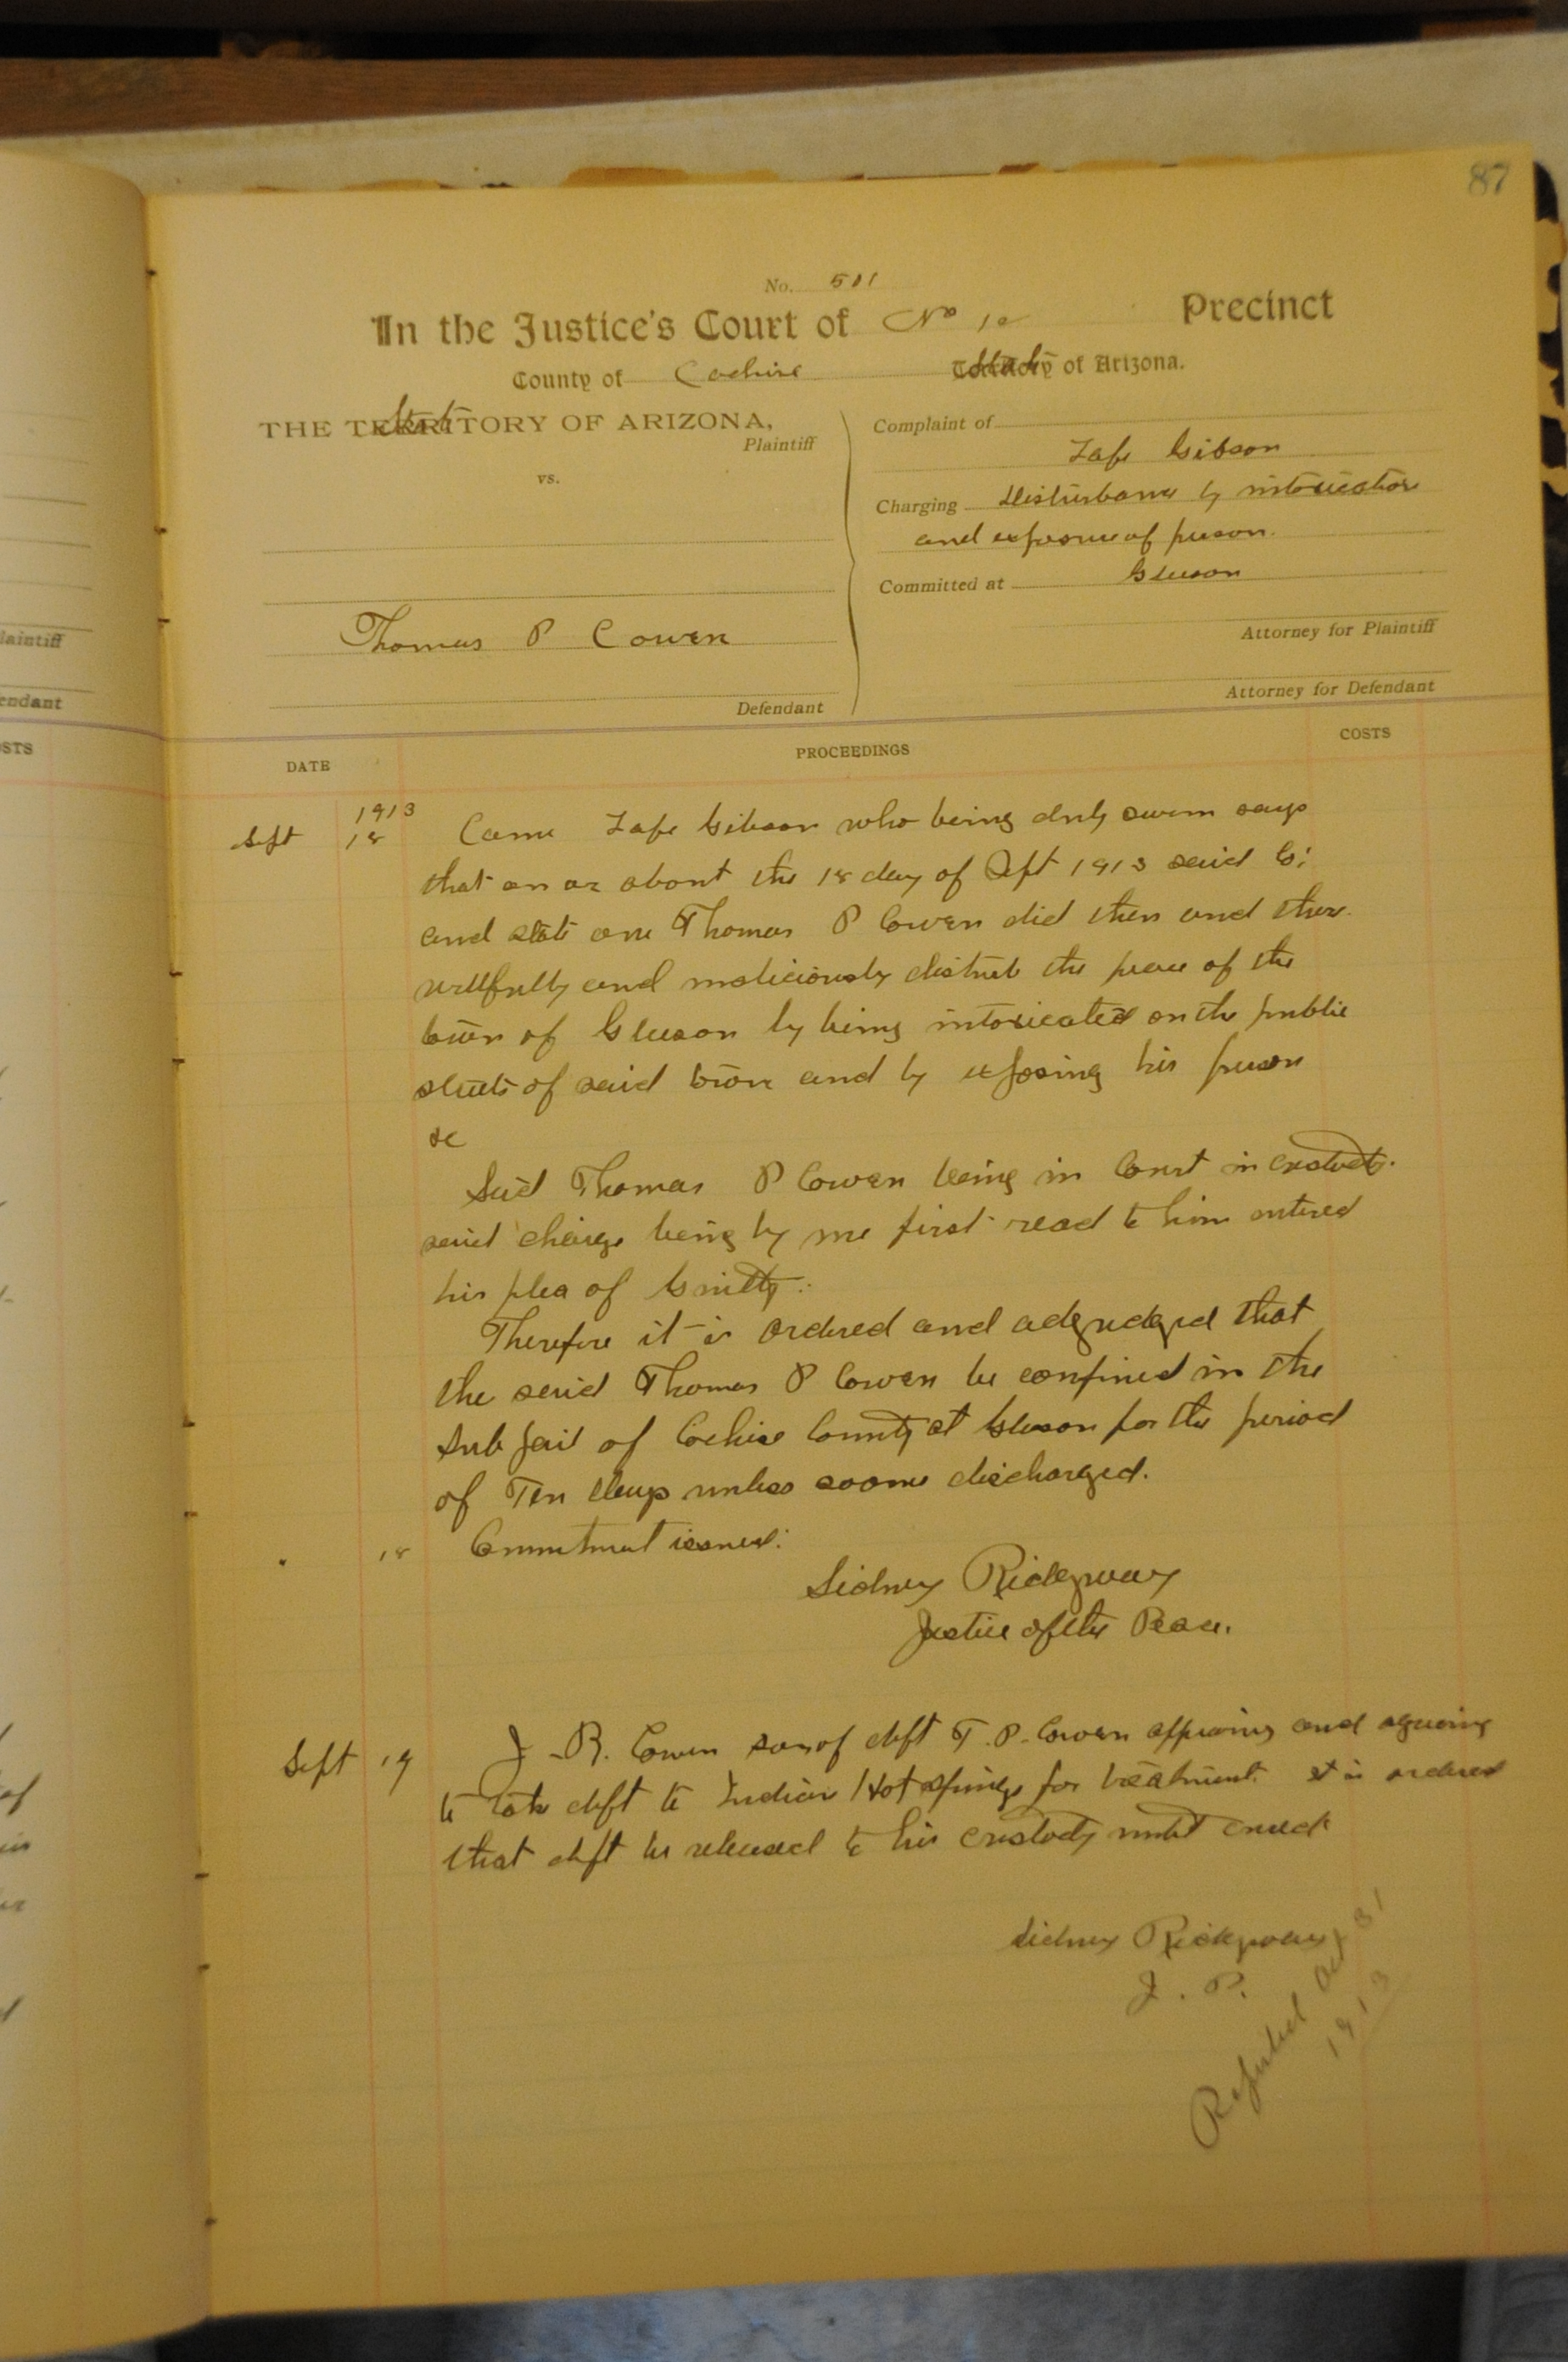 87
No. 501
In the Justice's Court of No 10 Precinct
County of Cochise State of Arizona.
THE State OF ARIZONA,
Plaintiff
vs.
Thomas P Cowen
Defendant
Complaint of
Lafe Gibson
Charging Disturbance by intoxication
and exposure of person.
Committed at Gleeson
Attorney for Plaintiff
Attorney for Defendant
DATE PROCEEDINGS COSTS
1913
Sept 18 Came Lafe Gibson who being duly sworn says
that on or about the 18 day of Sept 1913 said Co;
and state one Thomas P Cowen did then and there
willfully and maliciously disturb the peace of the
town of Gleeson by being intoxicated on the public
streets of said town and by exposing his person
&c
Said Thomas P Cowen being in Court in custody.
said charge being by me first read to him entered
his plea of Guilty.
Therefore it is ordered and adjudged that
the said Thomas P Cowen be confined in the
Sub jail of Cochise County at Gleeson for the period
of Ten Days unless sooner discharged.
18 Commitment issued.
Sidney Ridgway
Justice of the Peace.
Sept 19 J. R. Cowen son of deft T. P. Cowen appearing and agreeing
to take deft to Indian Hot Springs for treatment. It is ordered
that deft be released to his custody until cured
Sidney Ridgway
J. P.
Reported Oct 31
1913
laintiff
endant
OSTS